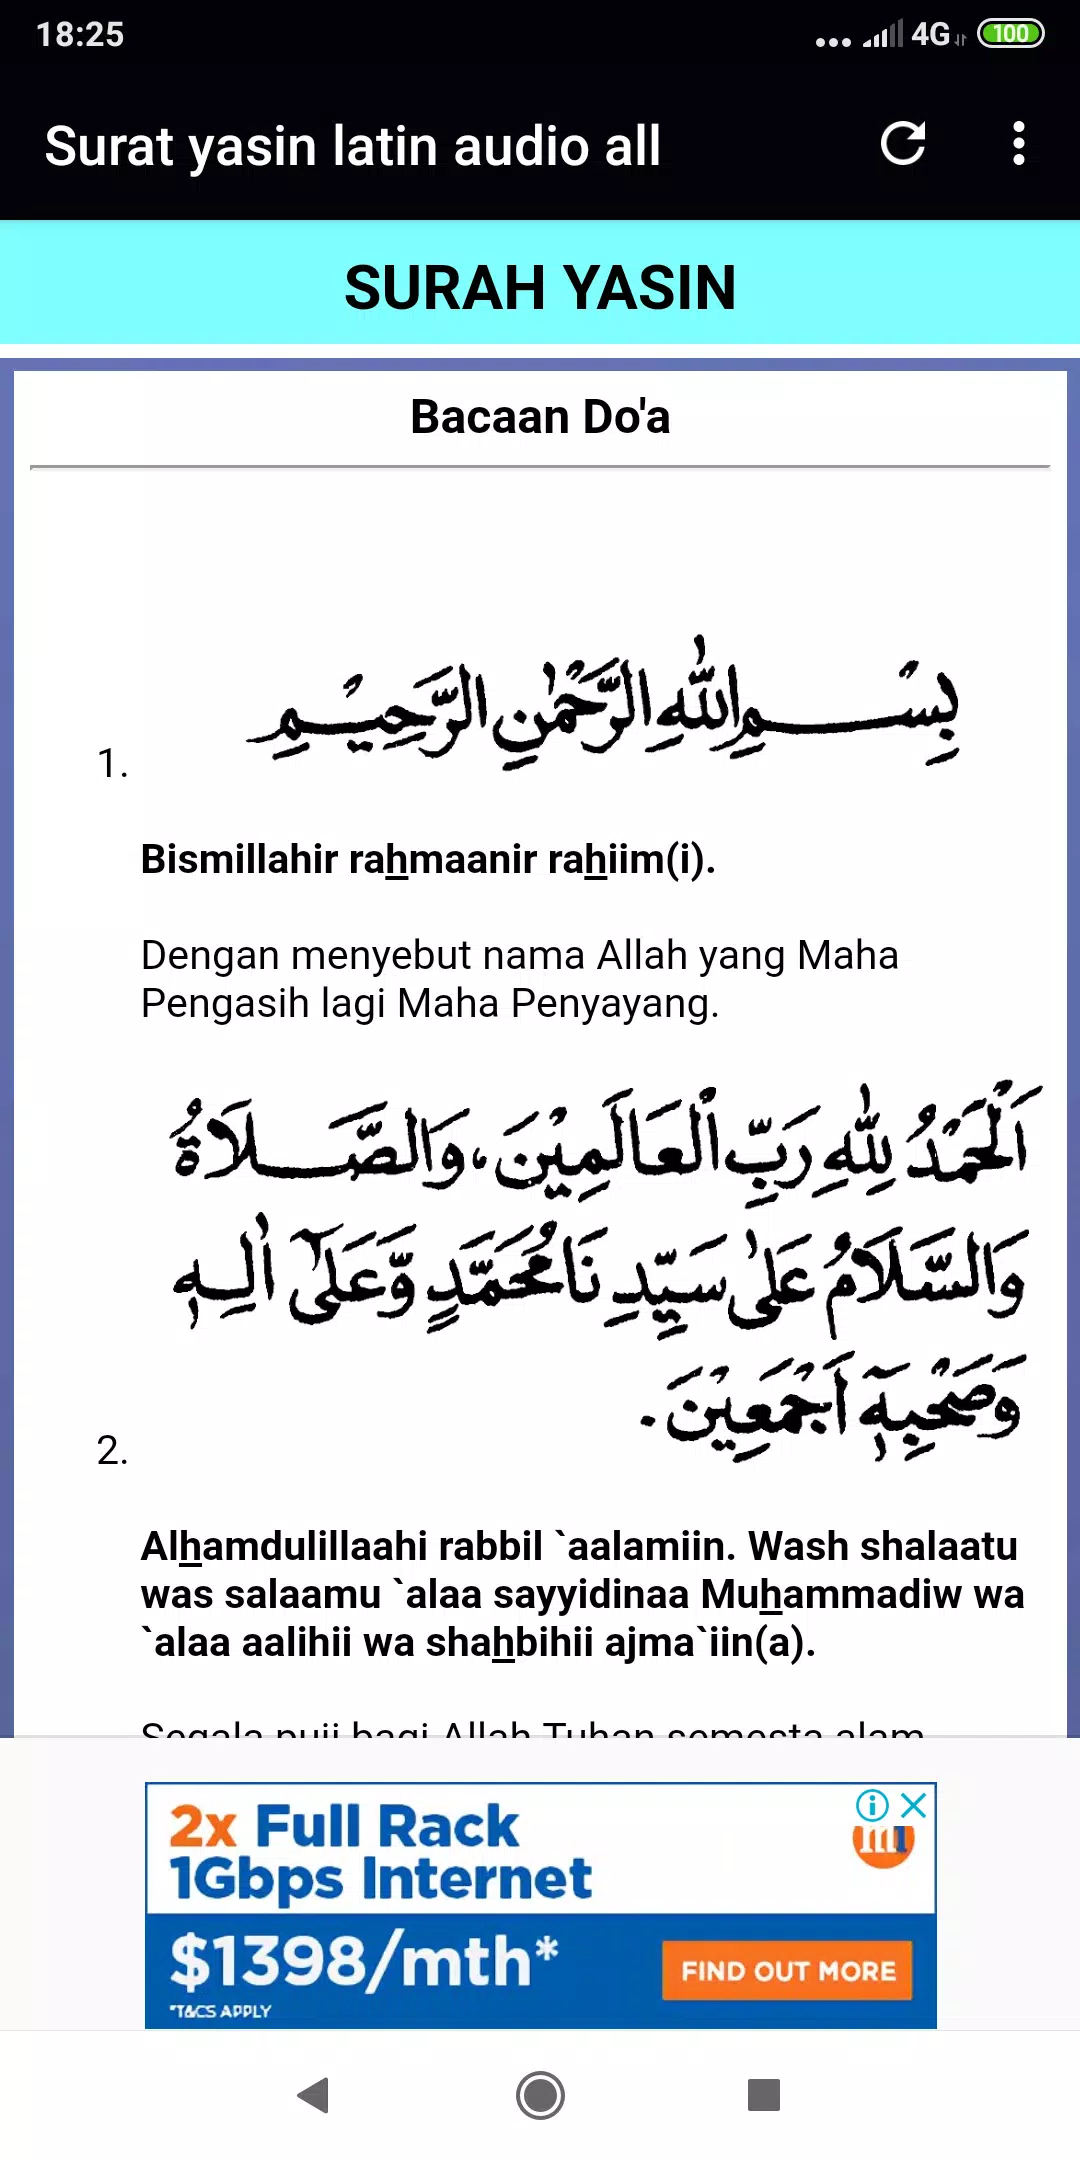 18:25
4G
100
Surat yasin latin audio all
SURAH YASIN
Bacaan Do'a
بِسْـــمِ اللهِ الرَّحْمٰنِ الرَّحِيْمِ
1.
Bismillahir rahmaanir rahiim(i).
Dengan menyebut nama Allah yang Maha
Pengasih lagi Maha Penyayang.
اَلْحَمْدُ لِلّٰهِ رَبِّ الْعَالَمِيْنَ، وَالصَّـــلَاةُ
وَالسَّلَامُ عَلٰى سَيِّدِ نَا مُحَمَّدٍ وَّعَلٰٓى اٰلِـهٖ
وَصَحْبِهٖٓ اَجْمَعِيْنَ.
2.
Alhamdulillaahi rabbil `aalamiin. Wash shalaatu
was salaamu `alaa sayyidinaa Muhammadiw wa
`alaa aalihii wa shahbihii ajma`iin(a).
Segala puji bagi Allah Tuhan semesta alam
2x Full Rack
1Gbps Internet
m1
$1398/mth*
FIND OUT MORE
*T&CS APPLY